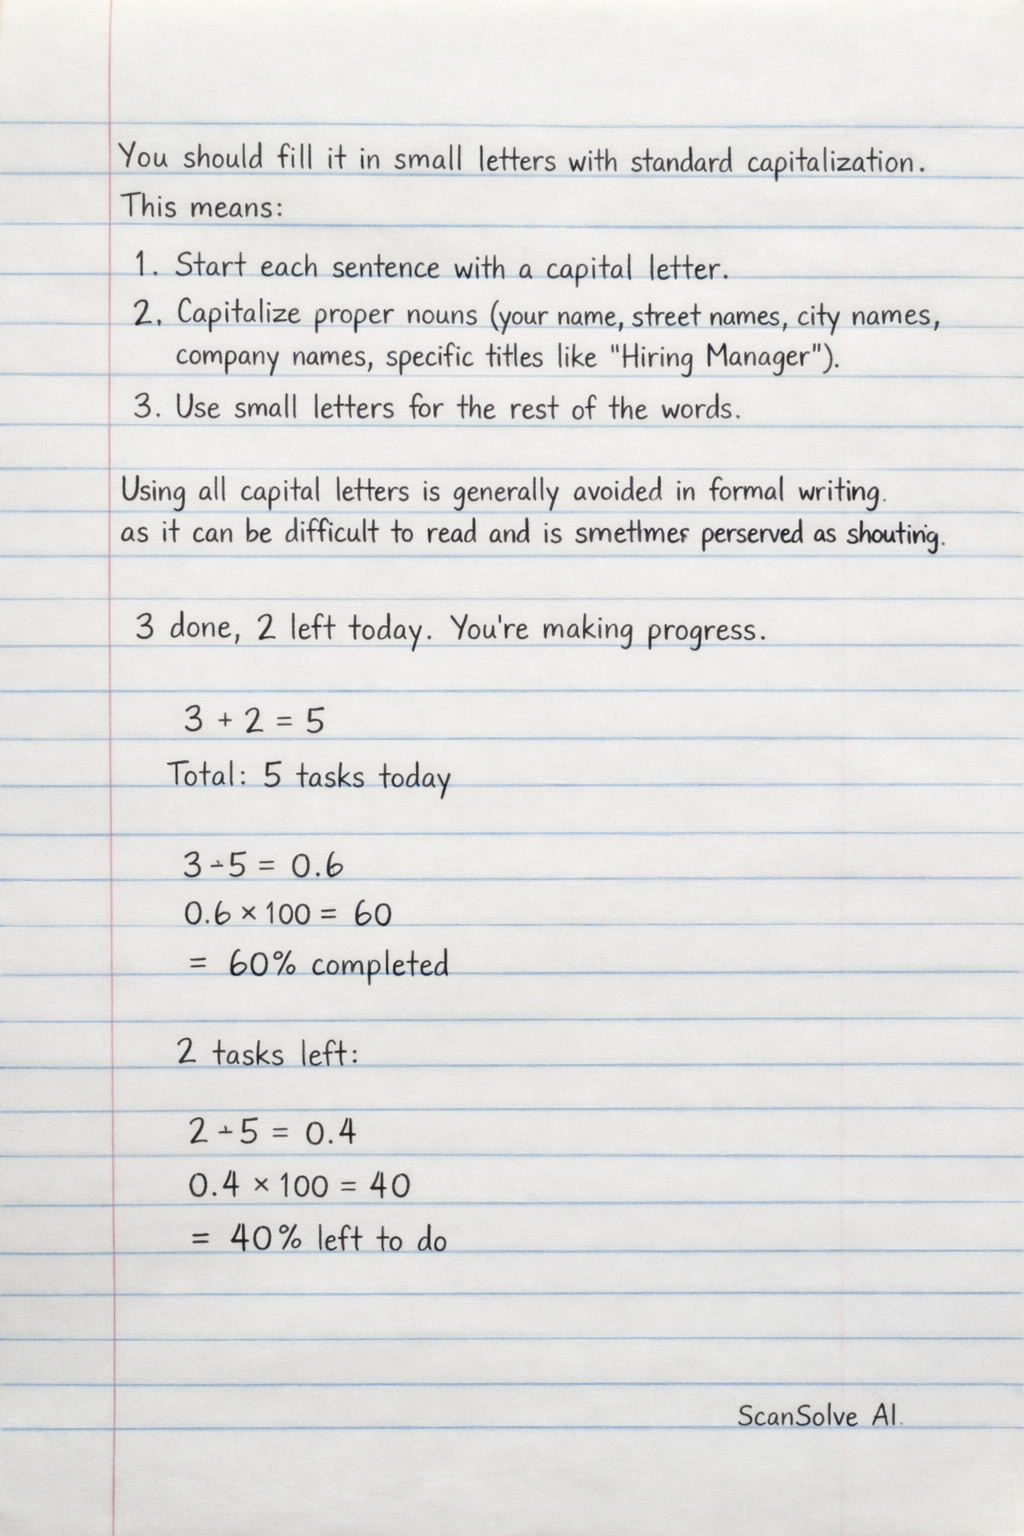 You should fill it in small letters with standard capitalization.
This means:
1. Start each sentence with a capital letter.
2. Capitalize proper nouns (your name, street names, city names,
company names, specific titles like "Hiring Manager").
3. Use small letters for the rest of the words.
Using all capital letters is generally avoided in formal writing.
as it can be difficult to read and is smetlmes perserved as shouting.
3 done, 2 left today. You're making progress.
3 + 2 = 5
Total: 5 tasks today
3 ÷ 5 = 0.6
0.6 × 100 = 60
= 60% completed
2 tasks left:
2 ÷ 5 = 0.4
0.4 × 100 = 40
= 40% left to do
ScanSolve AI.